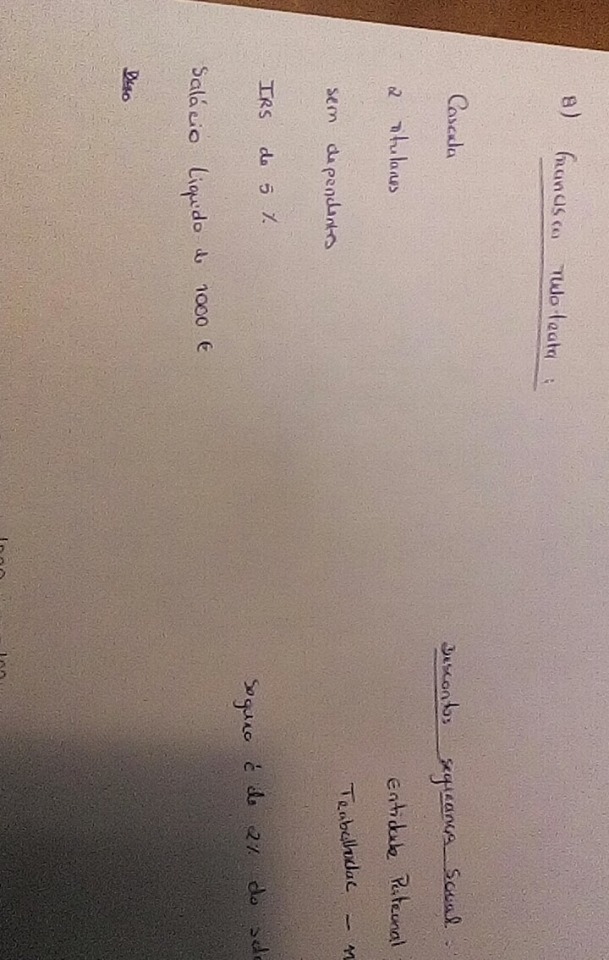 8) Francisco Tudo trata :
Casada
2 Titulares
sem dependentes
IRS de 5 %
Salário Liquido de 1000 €
Descontos segurança Social :
Entidade Patronal
Trabalhador -
Seguro é de 2% do
1000 100